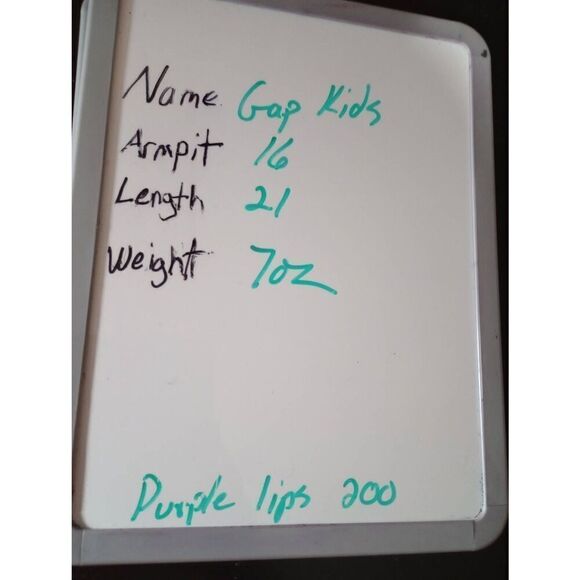 Name Gap Kids
Armpit 16
Length 21
Weight 7oz
Purple lips 200